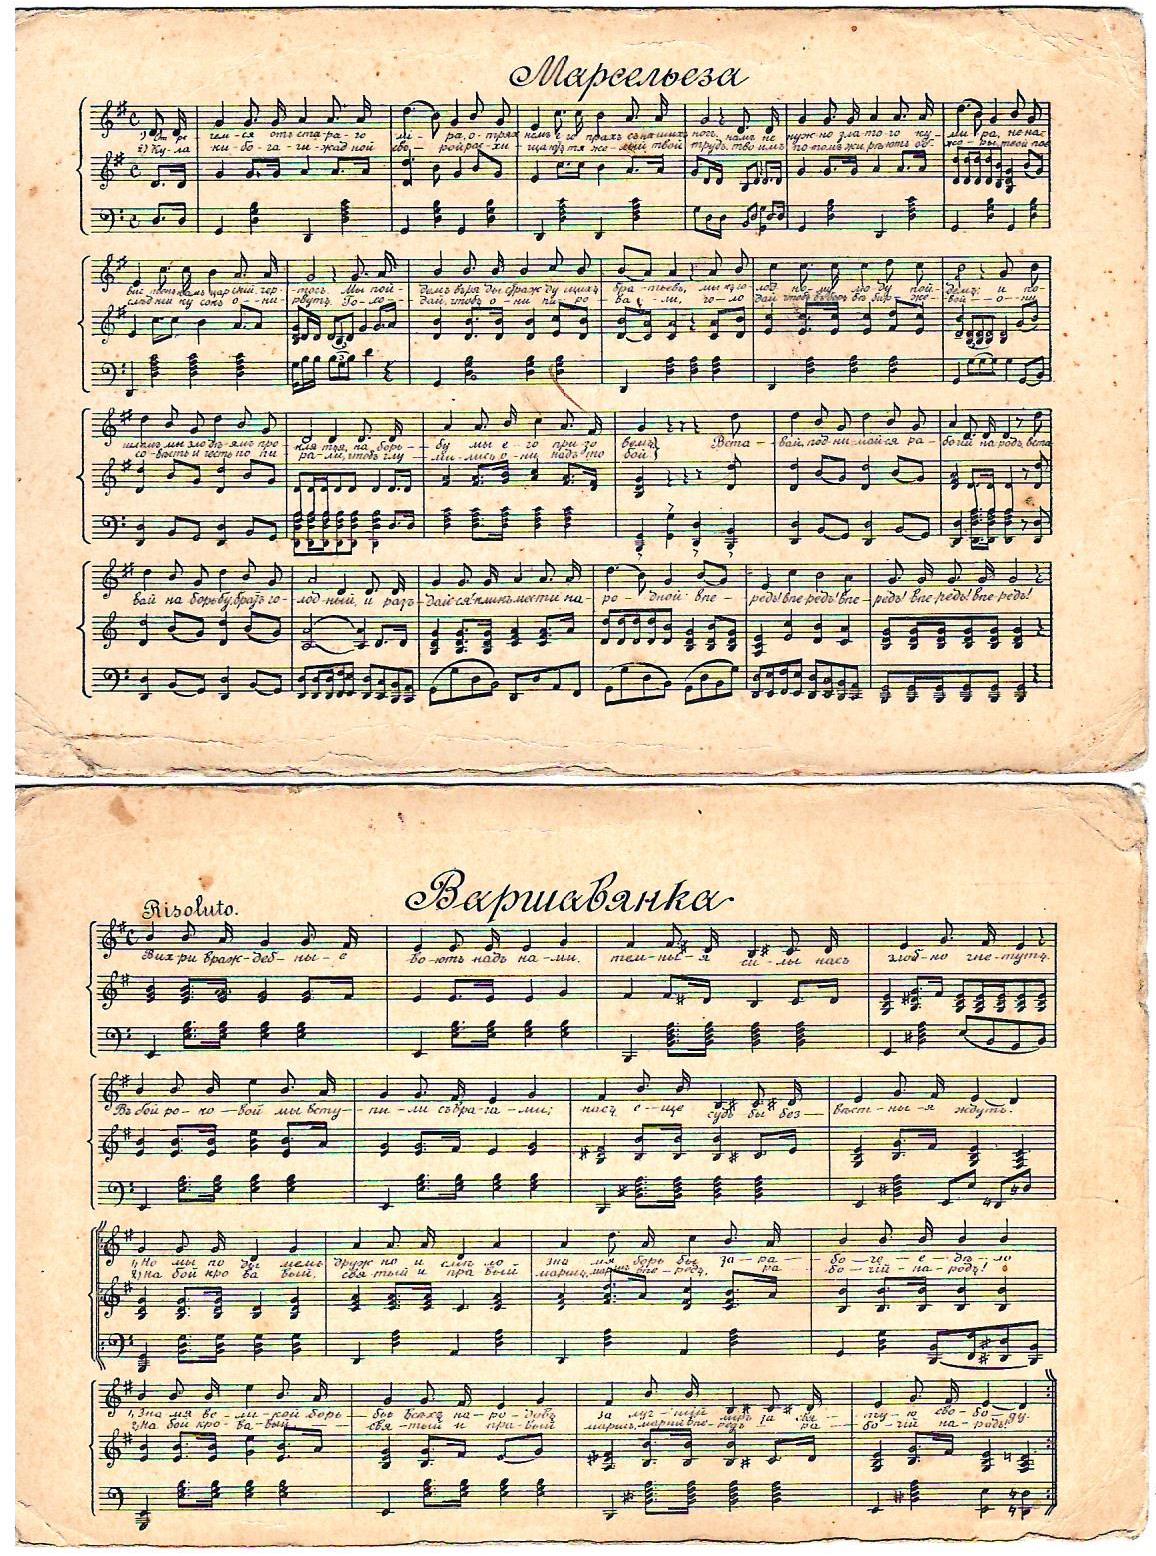 Марсельеза
1) От ре- чем-ся отъ ста-ра-го мi- ра, о-тряхнемъ е го прахъ съ нашихъ ногъ. намъ не нуж-но зла-то-го ку- ми-ра, не на-
2) Ку-ла ки- бо-га-ги- жад ной сво- рой рас-хи- ща-ютъ тя же-лый твой трудъ. тво имъ по-томъ жи-рѣютъ об- жо-ры, твой пос
царскiй чер- тогъ. Мы пой- демъ къ бра- тьямъ, мы къ го- лод но-му лю-ду пой- демъ; и по
слѣднiй ку сокъ о-ни- рвутъ. Го-ло- дай, чтобъ о-ни пи-ро ва-ли, го-ло дай чтобъ въ бир- же- вой о-ни
шлемъ мы зло дѣ-ямъ про- кля тья, на борь- бу мы е-го при зо вемъ, Вста- вай, под-ни-май-ся ра- бочiй на родъ, вста
со-вѣсть и честь по пи ра-ли, чтобъ глу- ми-лись о-ни надъ то бой
вай на борь-бу, братъ го- лод-ный, и раз- дай-ся кликъ мести на- ро- дной впе- редъ! впе редъ! впе- редъ! впе-редъ! впе-редъ!
Варшавянка
Risoluto.
Вих-ри враж-деб-ны-е во-ютъ надъ на-ми. тем-ны-я си-лы насъ злоб-но гне-тутъ.
Въ бой ро-ко-вой мы всту- пи-ли съ вра-га-ми; насъ е-ще судь бы без- вѣст-ны-я ждутъ.
1) Но мы по ды мемъ друж но и смѣ ло зна мя борь бы за-ра- бо-че-е-дѣ-ло
2) на бой кро ва вый, свя тый и пра вый маршъ, маршъ впе-редъ, ра бо-чiй-на-родъ!
1) Зна мя ве-ли-кой борь- бы всѣхъ на-ро-довъ за луч-шiй миръ за свя- ту-ю сво-бо-ду.
2) на бой кро-ва-вый- свя-тый и правый маршъ, маршъ впе-редъ ра- бо-чiй на-родъ!